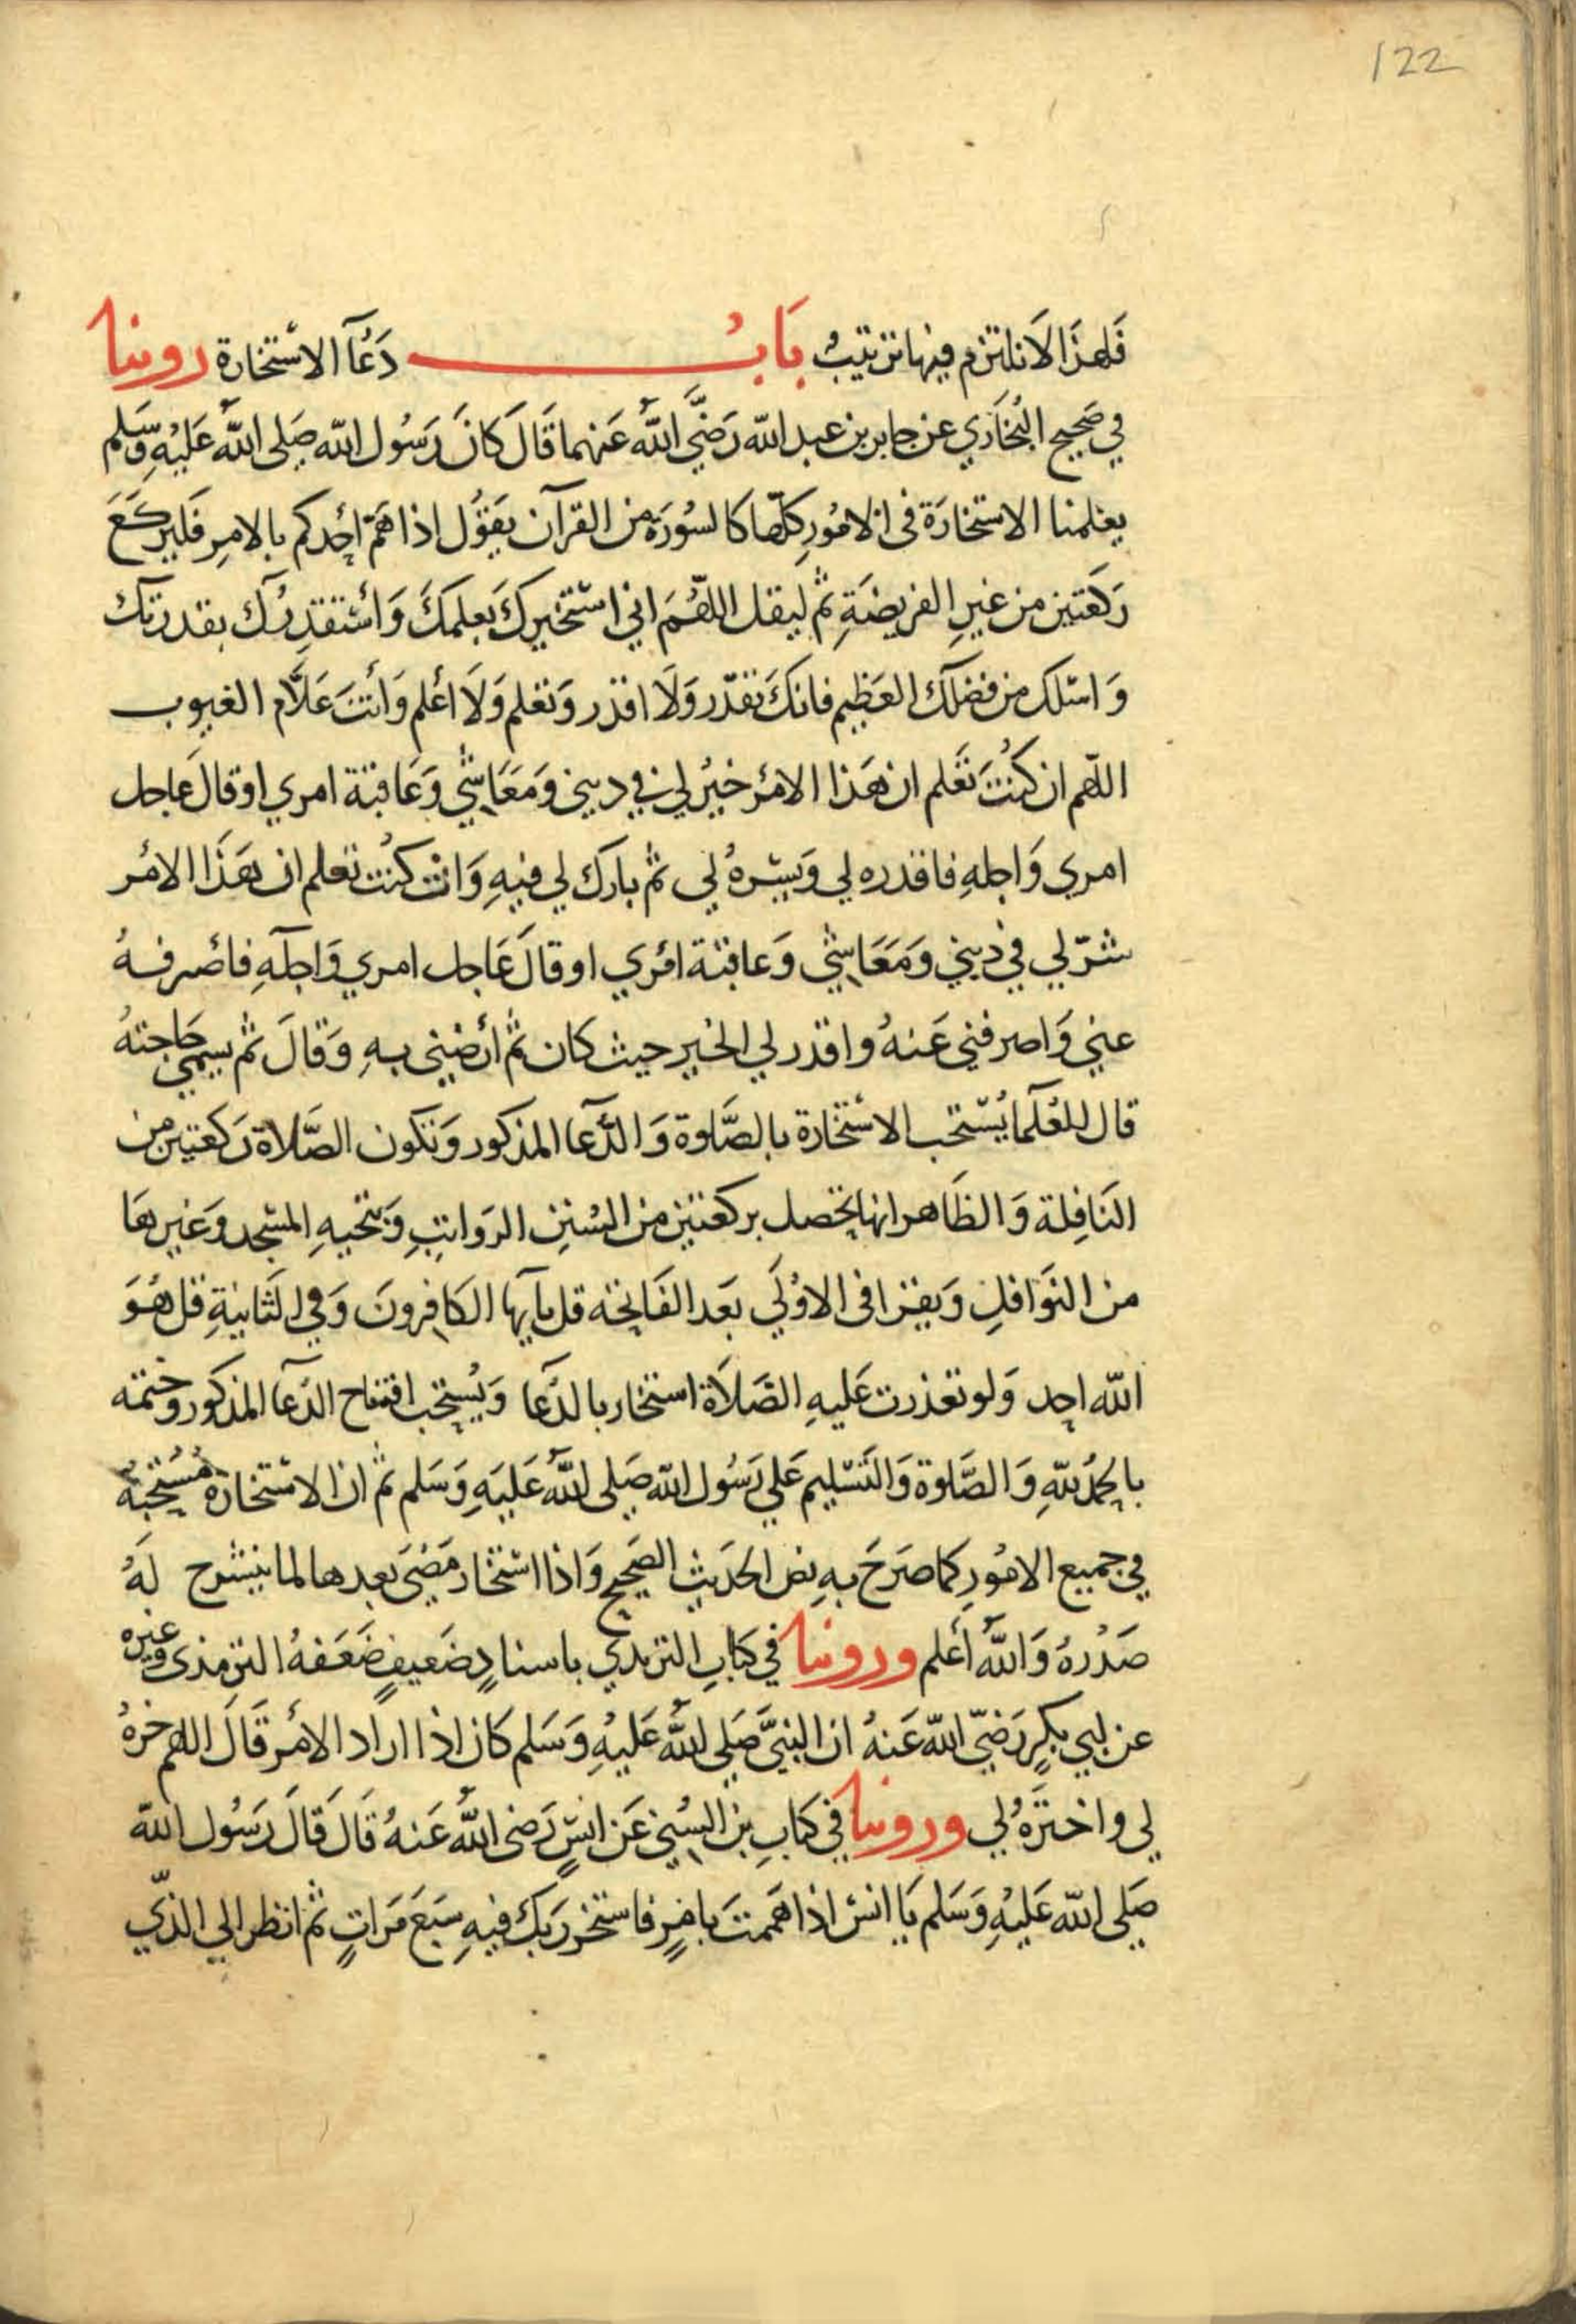 122
فَلهذَا لَا نلتزم فيها ترتيبٌ بَابُ دَعُآ الاسْتخارة روينا
في صَحِيح البُخَاري عن جابر بن عبد الله رَضيَّ اللّهُ عَنهما قَالَ كانَ رَسُول الله صَلى اللّهُ عَليْهِ وَسَّلم
يعلمنا الاستخارَة فى الامُورِ كلّها كالسُورَة من القرآن يقوُل اذا هَمّ احَدكم بالامِر فَليركعَ
رَكعتين من غيرِ الفريضَةِ ثم ليقل اللهُمَ اني استْخيركَ بَعلمكَ وَأسْتقدِرُك بقدرتك
وَاسئلك من فضلكَ العَظِيم فانكَ تقدّر وَلَا اقدر وَتعلم وَلَا اعْلم وَأنتَ عَلاَّم الغيوب
اللهّم ان كنُتَ تَعلم ان هَذا الامْر خيْرُ لي في ديني وَمَعَاشي وَعَاقبة امري او قالَ عَاجل
امري وَاجلهِ فاقدره لي وَيسّرهُ لي ثم بارك لي فيهِ وَانْ كنُت تعلم ان هَذَا الامْر
شرّ لي في ديني وَمَعَاشي وَعاقبة امْري او قالَ عَاجل امري وَاجلهِ فاصْرفهُ
عني وَاصرفني عَنهُ واقدر لي الخير حيث كان ثمُ أرْضني بهِ وَقالَ ثم يسمي حَاجتهُ
قال للعُلمآ يُسْتحب الاسْتخارة بالصَّلوة وَالدُّعآ المذكور وَتكون الصّلاة رَكعتين من
النَافِلة وَالظَاهر انها تحصل بركعتين من السُنِن الروَاتبِ وَبتحيهِ المسْجد وَغيرهَا
من النوَافلِ وَيقرا فى الاوُلَي بَعد الفَاتحة قل يايها الكافِرونَ وَفي الثانيةِ قل هُوَ
الله احد وَلو تعذرت عَليهِ الصَلاَة استخار بالدُعآ وَيُستحب افتتاح الدّعآ المذكور وختمه
بالحمُد للهِ وَالصَّلوة وَالتَسْليم عَلي رَسُول الله صَلى اللّهُ عَليَهِ وَسَلم ثم ان الاسْتخارة مُسْتحبة
في جميع الامُورِ كما صَرحَ بهِ نص الحَديثِ الصَحِيح وَاذا اسْتخار مَضْىَ بعدها لما ينشرح لهُ
صَدْرهُ وَاللهُ اعْلم وروينا في كتابِ الترمدي باسنادٍ ضَعيفٍ ضَعَفهُ الترمذى وغيره
عن ابي بكرٍ رَضيّ الله عَنهُ ان النبيَّ صَلي اللّهُ عَليْهِ وَسَلم كان اذا اراد الامْر قَالَ اللهم خرهُ
لي واخترَهُ لي وروينا في كتابِ بن السُني عَن انسٍ رَضى اللّهُ عَنهُ قَالَ قَالَ رَسُول الله
صَلي الله عَليْهِ وَسَلم يَا انسْ اذا هَممتَ بامْرٍ فاستخر رَبكَ فيهِ سَبَعَ مَرَاتٍ ثم انظر الي الذّي